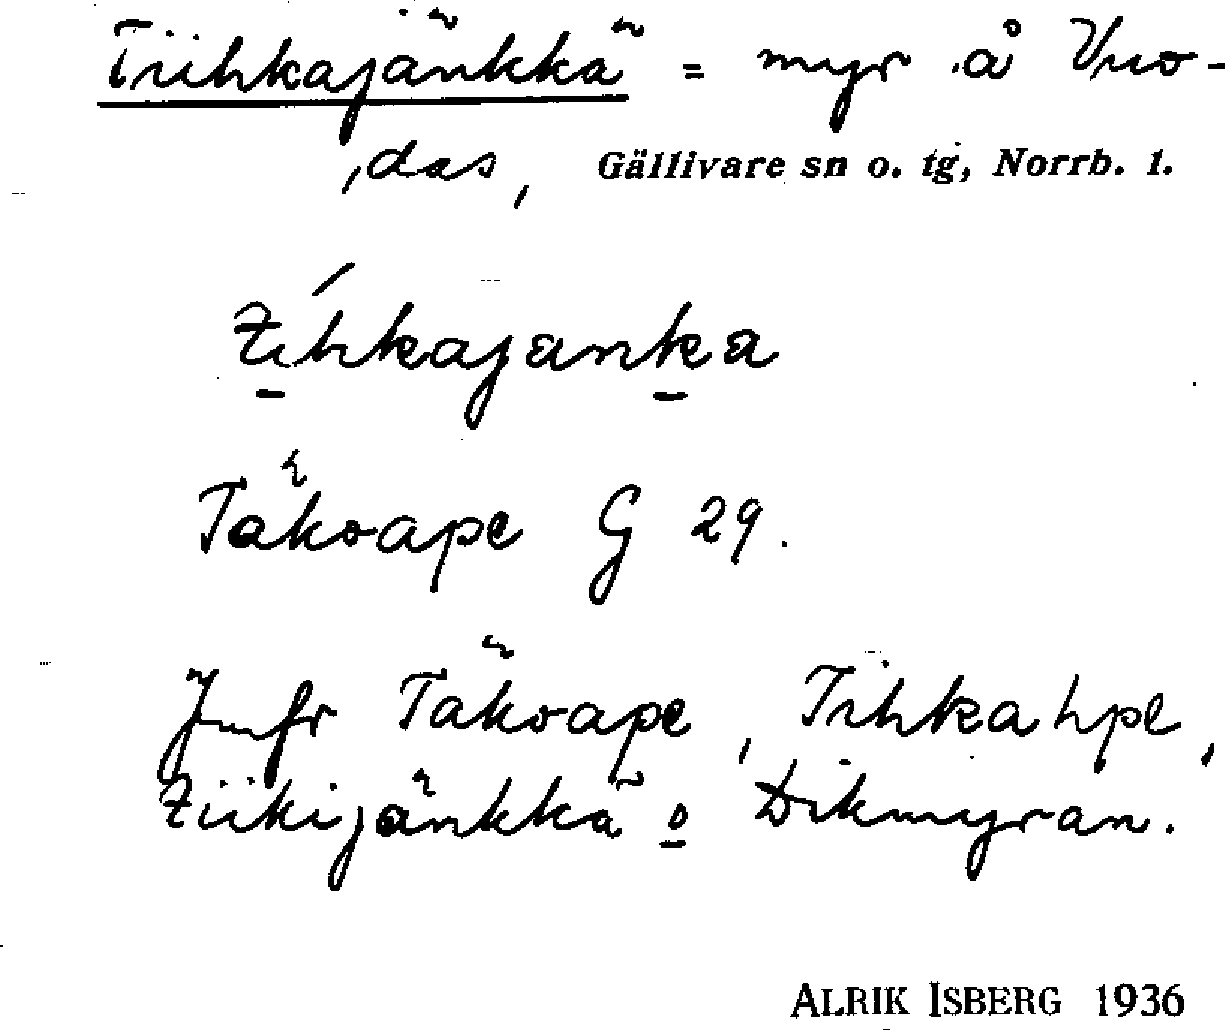 Tiihkajänkkä = myr å Vuo-
das, Gällivare sn o. tg, Norrb. l.
tihkajaŋka
Täkoape G 29.
Jmfr Täkoape, Tihkahpe,
Tiikijänkkä o Dikmyran.
ALRIK ISBERG 1936